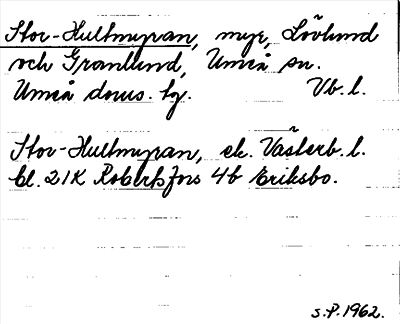 Stor-Hultmyran, myr, Lövlund
och Granlund, Umeå sn.
Umeå doms. tg. Vb. l.
Stor-Hultmyran, ek. Västerb. l.
bl. 21K Robertsfors 4b Eriksbo.
S.P. 1962.